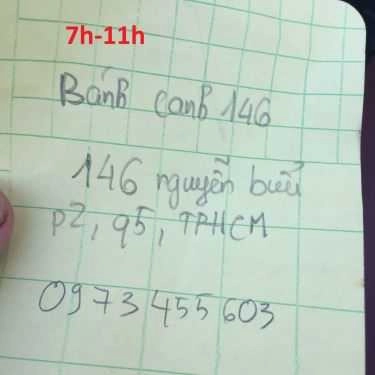 7h-11h
Bánh canh 146
146 nguyễn bửu
p2, q5, TPHCM
0973 455 603